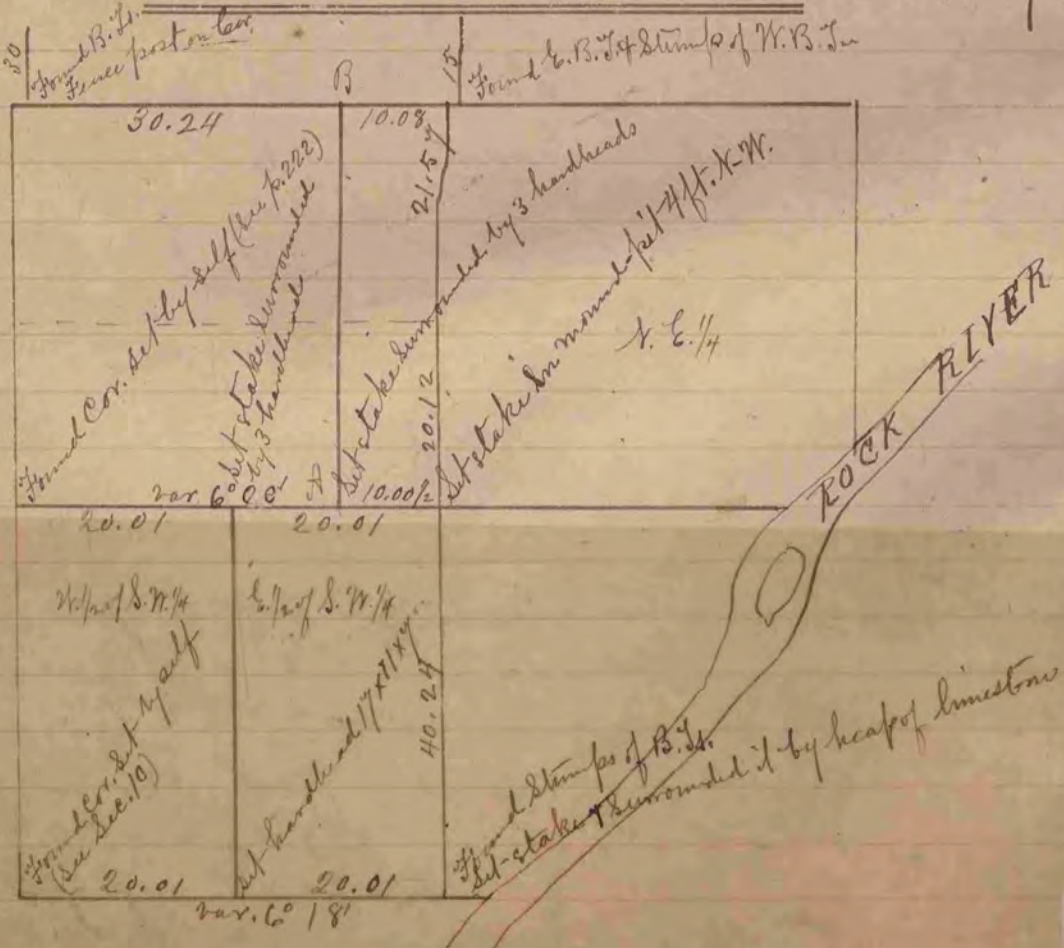 30
Found B.Ts.
Fence post on Cor.
B
15
Found E.B.T. & Stump of W.B.T.
30.24
10.08
21.57
Found Cor. set by self (See p. 222)
Set stake surrounded
by 3 hardheads
Set stake surrounded by 3 hardheads
20.12
Set stake in mound - pit 4 ft. N-W.
N. E. 1/4
ROCK RIVER
var. 6°
10.00 1/2
20.01
20.01
W. 1/2 of S. W. 1/4
E. 1/2 of S. W. 1/4
Found cor. set by self
(See Sec. 10)
Set hardhead 17 x 11 x
40.24
Found Stumps of B.Ts.
Set stake & surrounded it by heap of limestone
20.01
20.01
var. 6° 18'